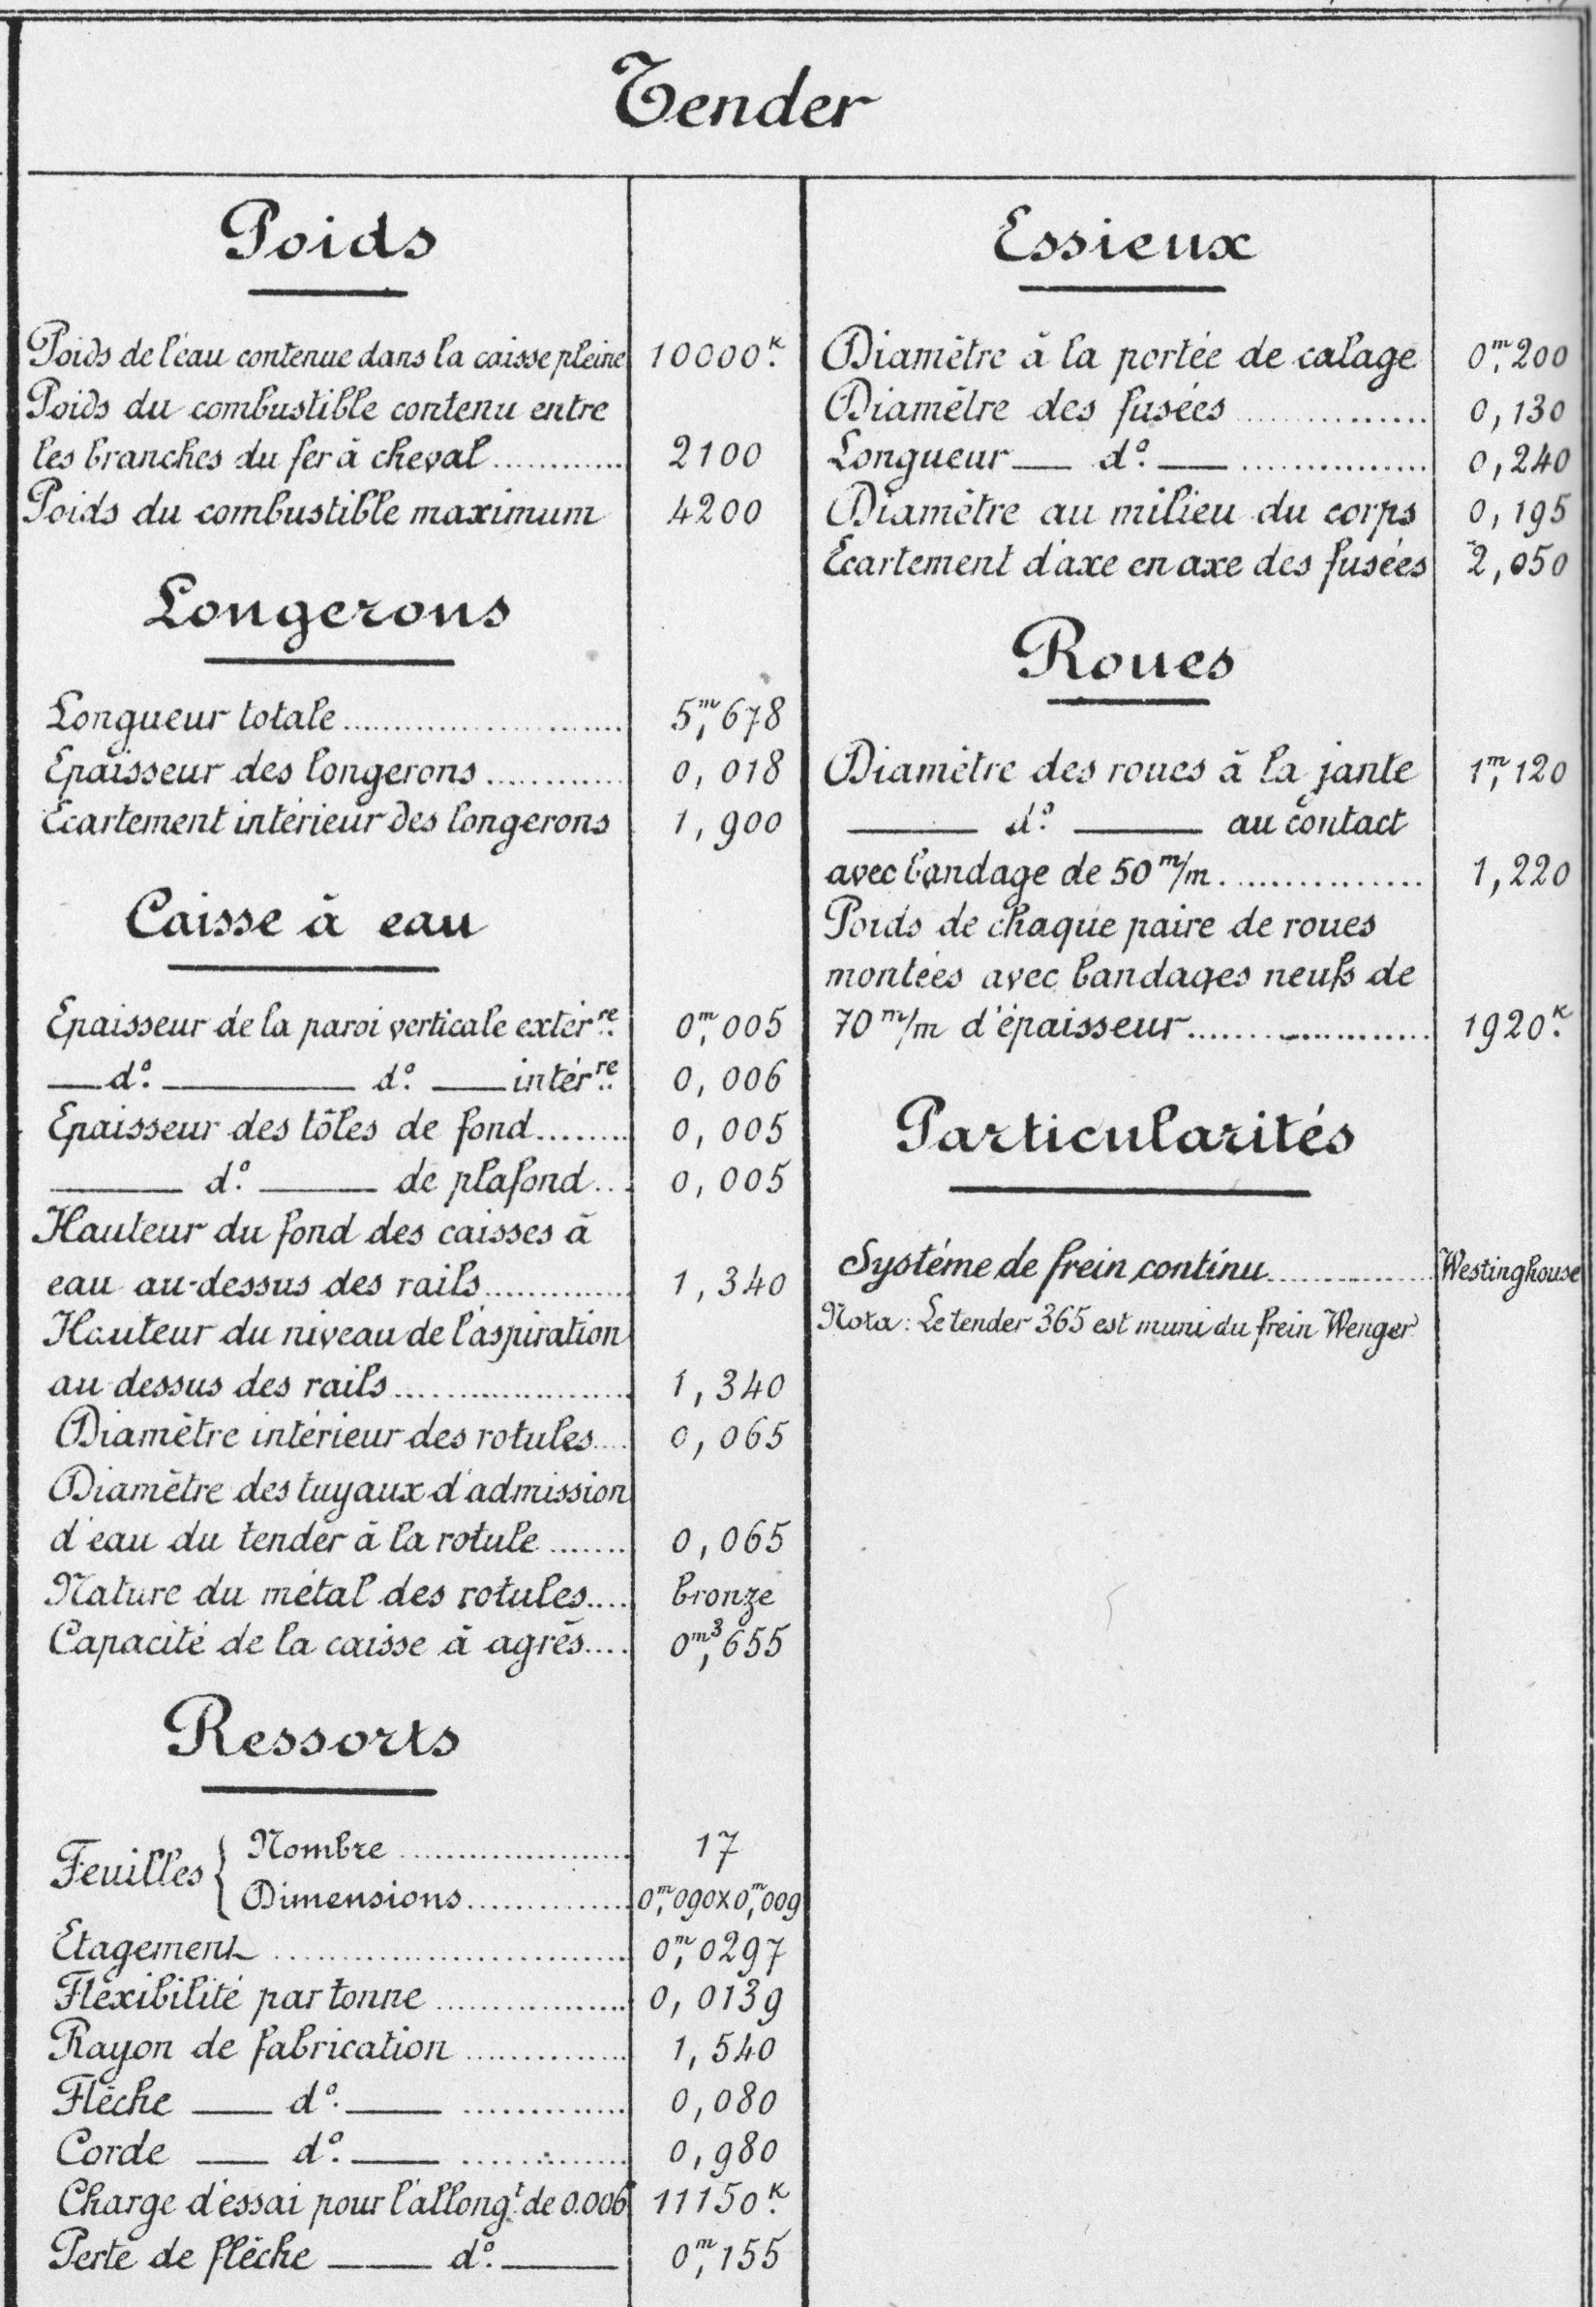 Tender
Poids
Poids de l'eau contenue dans la caisse pleine 10000k.
Poids du combustible contenu entre
les branches du fer à cheval............ 2100
Poids du combustible maximum 4200
Longerons
Longueur totale.......................... 5m,678
Epaisseur des longerons............ 0,018
Ecartement intérieur des longerons 1,900
Caisse à eau
Epaisseur de la paroi verticale extérre. 0m,005
— do. ——— do. — intérre. 0,006
Epaisseur des tôles de fond........ 0,005
——— do. ——— de plafond... 0,005
Hauteur du fond des caisses à
eau au-dessus des rails............. 1,340
Hauteur du niveau de l'aspiration
au dessus des rails..................... 1,340
Diamètre intérieur des rotules.... 0,065
Diamètre des tuyaux d'admission
d'eau du tender à la rotule ....... 0,065
Nature du métal des rotules.... bronze
Capacité de la caisse à agrès.... 0m3,655
Ressorts
Feuilles { Nombre ..................... 17
Dimensions............... 0m,090x0m,009
Etagement ............................... 0m,0297
Fléxibilité par tonne .................. 0,0139
Rayon de fabrication ............... 1,540
Flèche — do. — ............... 0,080
Corde — do. — ............... 0,980
Charge d'éssai pour l'allongt. de 0.006 11150k.
Perte de flèche ——— do. ——— 0m,155
Essieux
Diamètre à la portée de calage 0m,200
Diamètre des fusées ................. 0,130
Longueur — do. — ................. 0,240
Diamètre au milieu du corps 0,195
Ecartement d'axe en axe des fusées 2,050
Roues
Diamètre des roues à la jante 1m,120
——— do. ——— au contact
avec bandage de 50 m/m ................ 1,220
Poids de chaque paire de roues
montées avec bandages neufs de
70 m/m d'épaisseur..................... 1920k.
Particularités
Systéme de frein continu............... Westinghouse
Nota: Le tender 365 est muni du frein Wenger